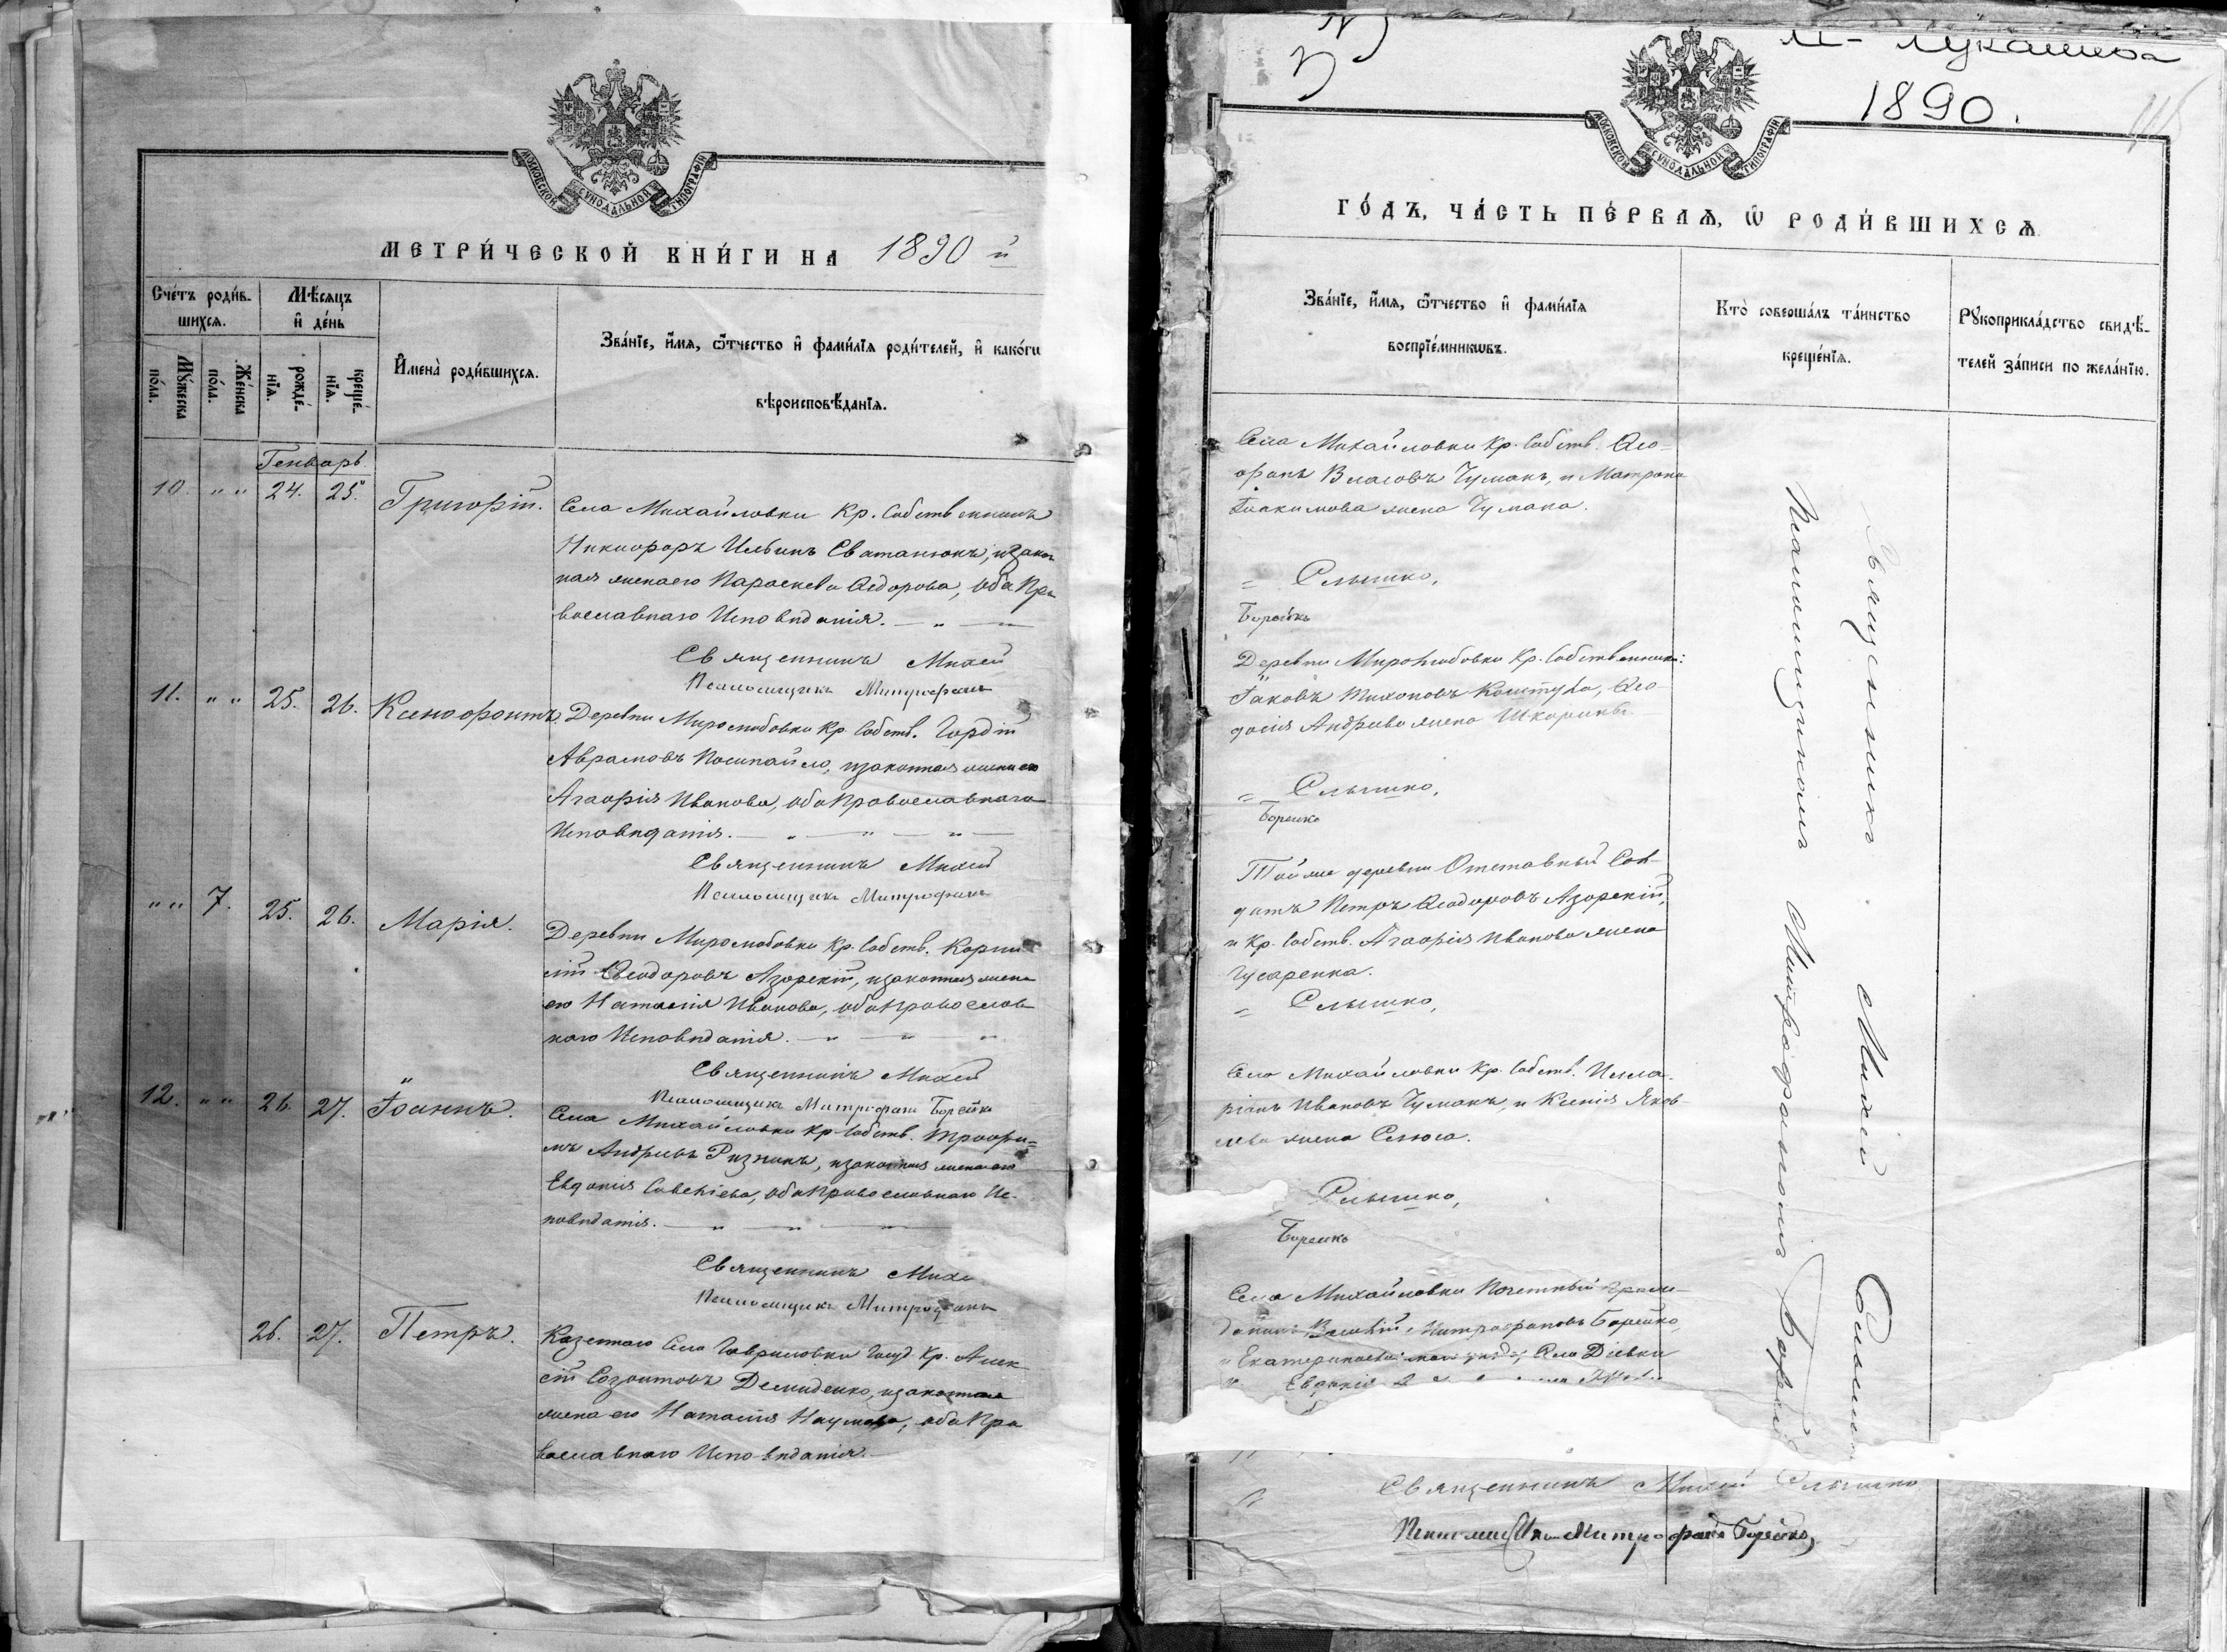 МОСКОВСКОЙ СУНОДАЛЬНОЙ ТИПОГРАФІИ
МЕТРИ́ЧЕСКОЙ КНИ́ГИ НА 1890 й
Сче́тъ роди́в-
шихсѧ.
Мѣ́сѧцъ
и҆ де́нь
Мꙋ́жеска
по́ла.
Же́нска
по́ла.
рожде́-
нїѧ.
креще́-
нїѧ.
И҆мена̀ роди́вшихсѧ.
Зва́нїе, и҆́мѧ, ѻ҆́тчество и҆ фами́лїѧ роди́телей, и҆ како́гѡ
вѣроисповѣ́данїѧ.
Генварь
10. " " 24. 25. Григорій.
Села Михайловки Кр. Собственникъ
Никифоръ Ильинъ Сватанюкъ, и закон
ная жена его Параскева Ѳедорова, оба Пра
вославнаго Исповѣданія.
Священникъ Михей
Псаломщикъ Митрофанъ
11. " " 25. 26. Ксенофонтъ.
Деревни Миролюбовки Кр. Собств. Гордій
Аврамовъ Посипайло, и законная жена его
Агафія Иванова, оба Православнаго
Исповѣданія.
Священникъ Михей
Псаломщикъ Митрофанъ
" " 7. 25. 26. Марія.
Деревни Миролюбовки Кр. Собств. Корни
лій Ѳеодоровъ Азорскій, и законная жена
его Наталія Иванова, оба Православ
наго Исповѣданія.
Священникъ Михей
Псаломщикъ Митрофанъ Борейко
12. " " 26. 27. Іоаннъ.
Села Михайловки Кр. Собств. Трофи=
мъ Андреевъ Рѣзникъ, и законная жена его
Евдокія Савельева, оба Православнаго Ис-
повѣданія.
Священникъ Михе
Псаломщикъ Митрофанъ
26. 27. Петръ.
Казеннаго Села Гавриловки Госуд. Кр. Алек
сій Созонтовъ Демиденко, и законная
жена его Наталія Наумова, оба Пра
вославнаго Исповѣданія.
Лукашева
1890.
МОСКОВСКОЙ СУНОДАЛЬНОЙ ТИПОГРАФІИ
ГО́ДЪ, ЧА́СТЬ ПЕ́РВАѦ, Ѡ҆ РОДИ́ВШИХСѦ
Зва́нїе, и҆́мѧ, ѻ҆́тчество и҆ фами́лїѧ
воспрїе́мникѡвъ.
Кто̀ соверша́лъ та́инство
креще́нїѧ.
Рꙋкоприкла́дство свидѣ́-
телей за́писи по жела́нїю.
Села Михайловки Кр. Собств. Ѳео-
фанъ Власовъ Чумакъ, и Матрона
Іоакимова жена Чумака.
Слышко,
Борейко
Деревни Миролюбовки Кр. Собственники:
Іаковъ Тихоновъ Коштура, Ѳео-
досія Андреева жена
Слышко,
Борейко
Той же деревни Отставный Сол-
датъ Петръ Ѳеодоровъ Азорскій,
и Кр. Собств. Агафія Иванова жена
Гусаренка.
Слышко,
Села Михайловки Кр. Собств. Илла-
ріонъ Ивановъ Чумакъ, и Ксенія Яков
лева жена
Слышко,
Борейко
Села Михайловки Почетный Граж-
данинъ Митрофановъ Борейко,
Села Діевки
Евдокія
Священникъ Михей Слышко
Псаломщикъ Митрофанъ Борейко,
Священникъ Михей Слышко
Псаломщикомъ Митрофаномъ Борейко